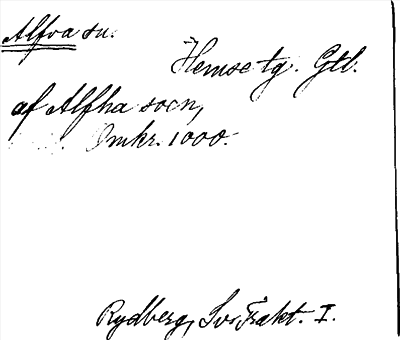 Alfva sn.
Hemse tg. Gtl.
af Alfha socn,
Omkr. 1000.
Rydberg, Sv. Trakt. I.